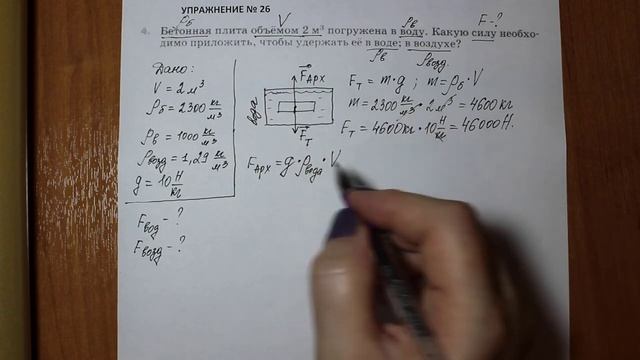 УПРАЖНЕНИЕ № 26
ρб V ρв F-?
4. Бетонная плита объёмом 2 м³ погружена в воду. Какую силу необхо-
димо приложить, чтобы удержать её в воде; в воздухе?
ρв ρвозд.
Дано:
V = 2 м³
ρб = 2300 кг/м³
ρв = 1000 кг/м³
ρвозд = 1,29 кг/м³
g = 10 Н/кг
Fвод - ?
Fвозд - ?
вода
FАрх
Fт
Fт = m·g ; m = ρб·V
m = 2300 кг/м³ · 2 м³ = 4600 кг
Fт = 4600 кг · 10 Н/кг = 46000 Н.
FАрх = g·ρвода·V